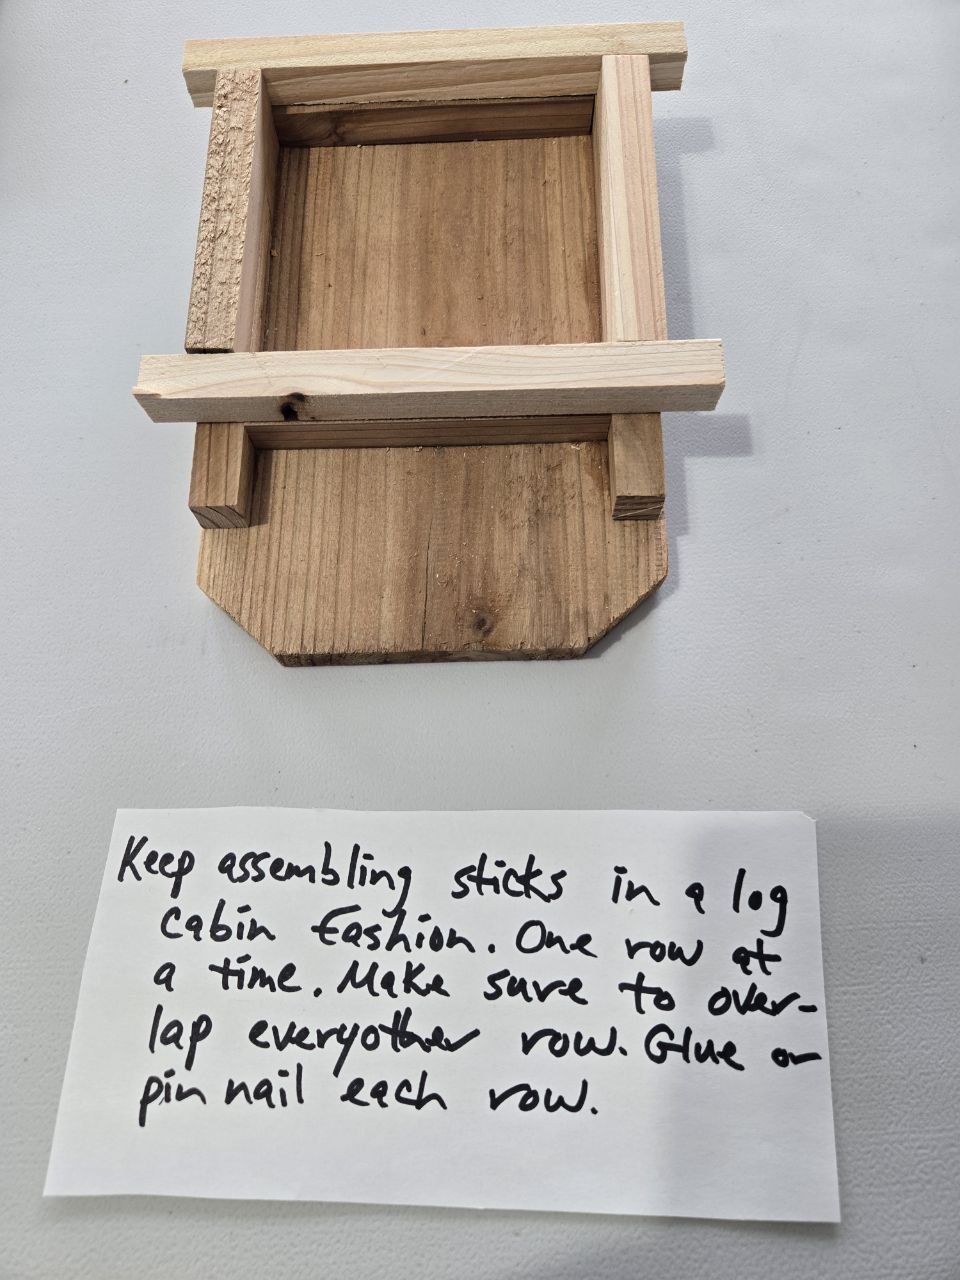 Keep assembling sticks in a log
cabin fashion. One row at
a time. Make sure to over-
lap everyother row. Glue or
pin nail each row.